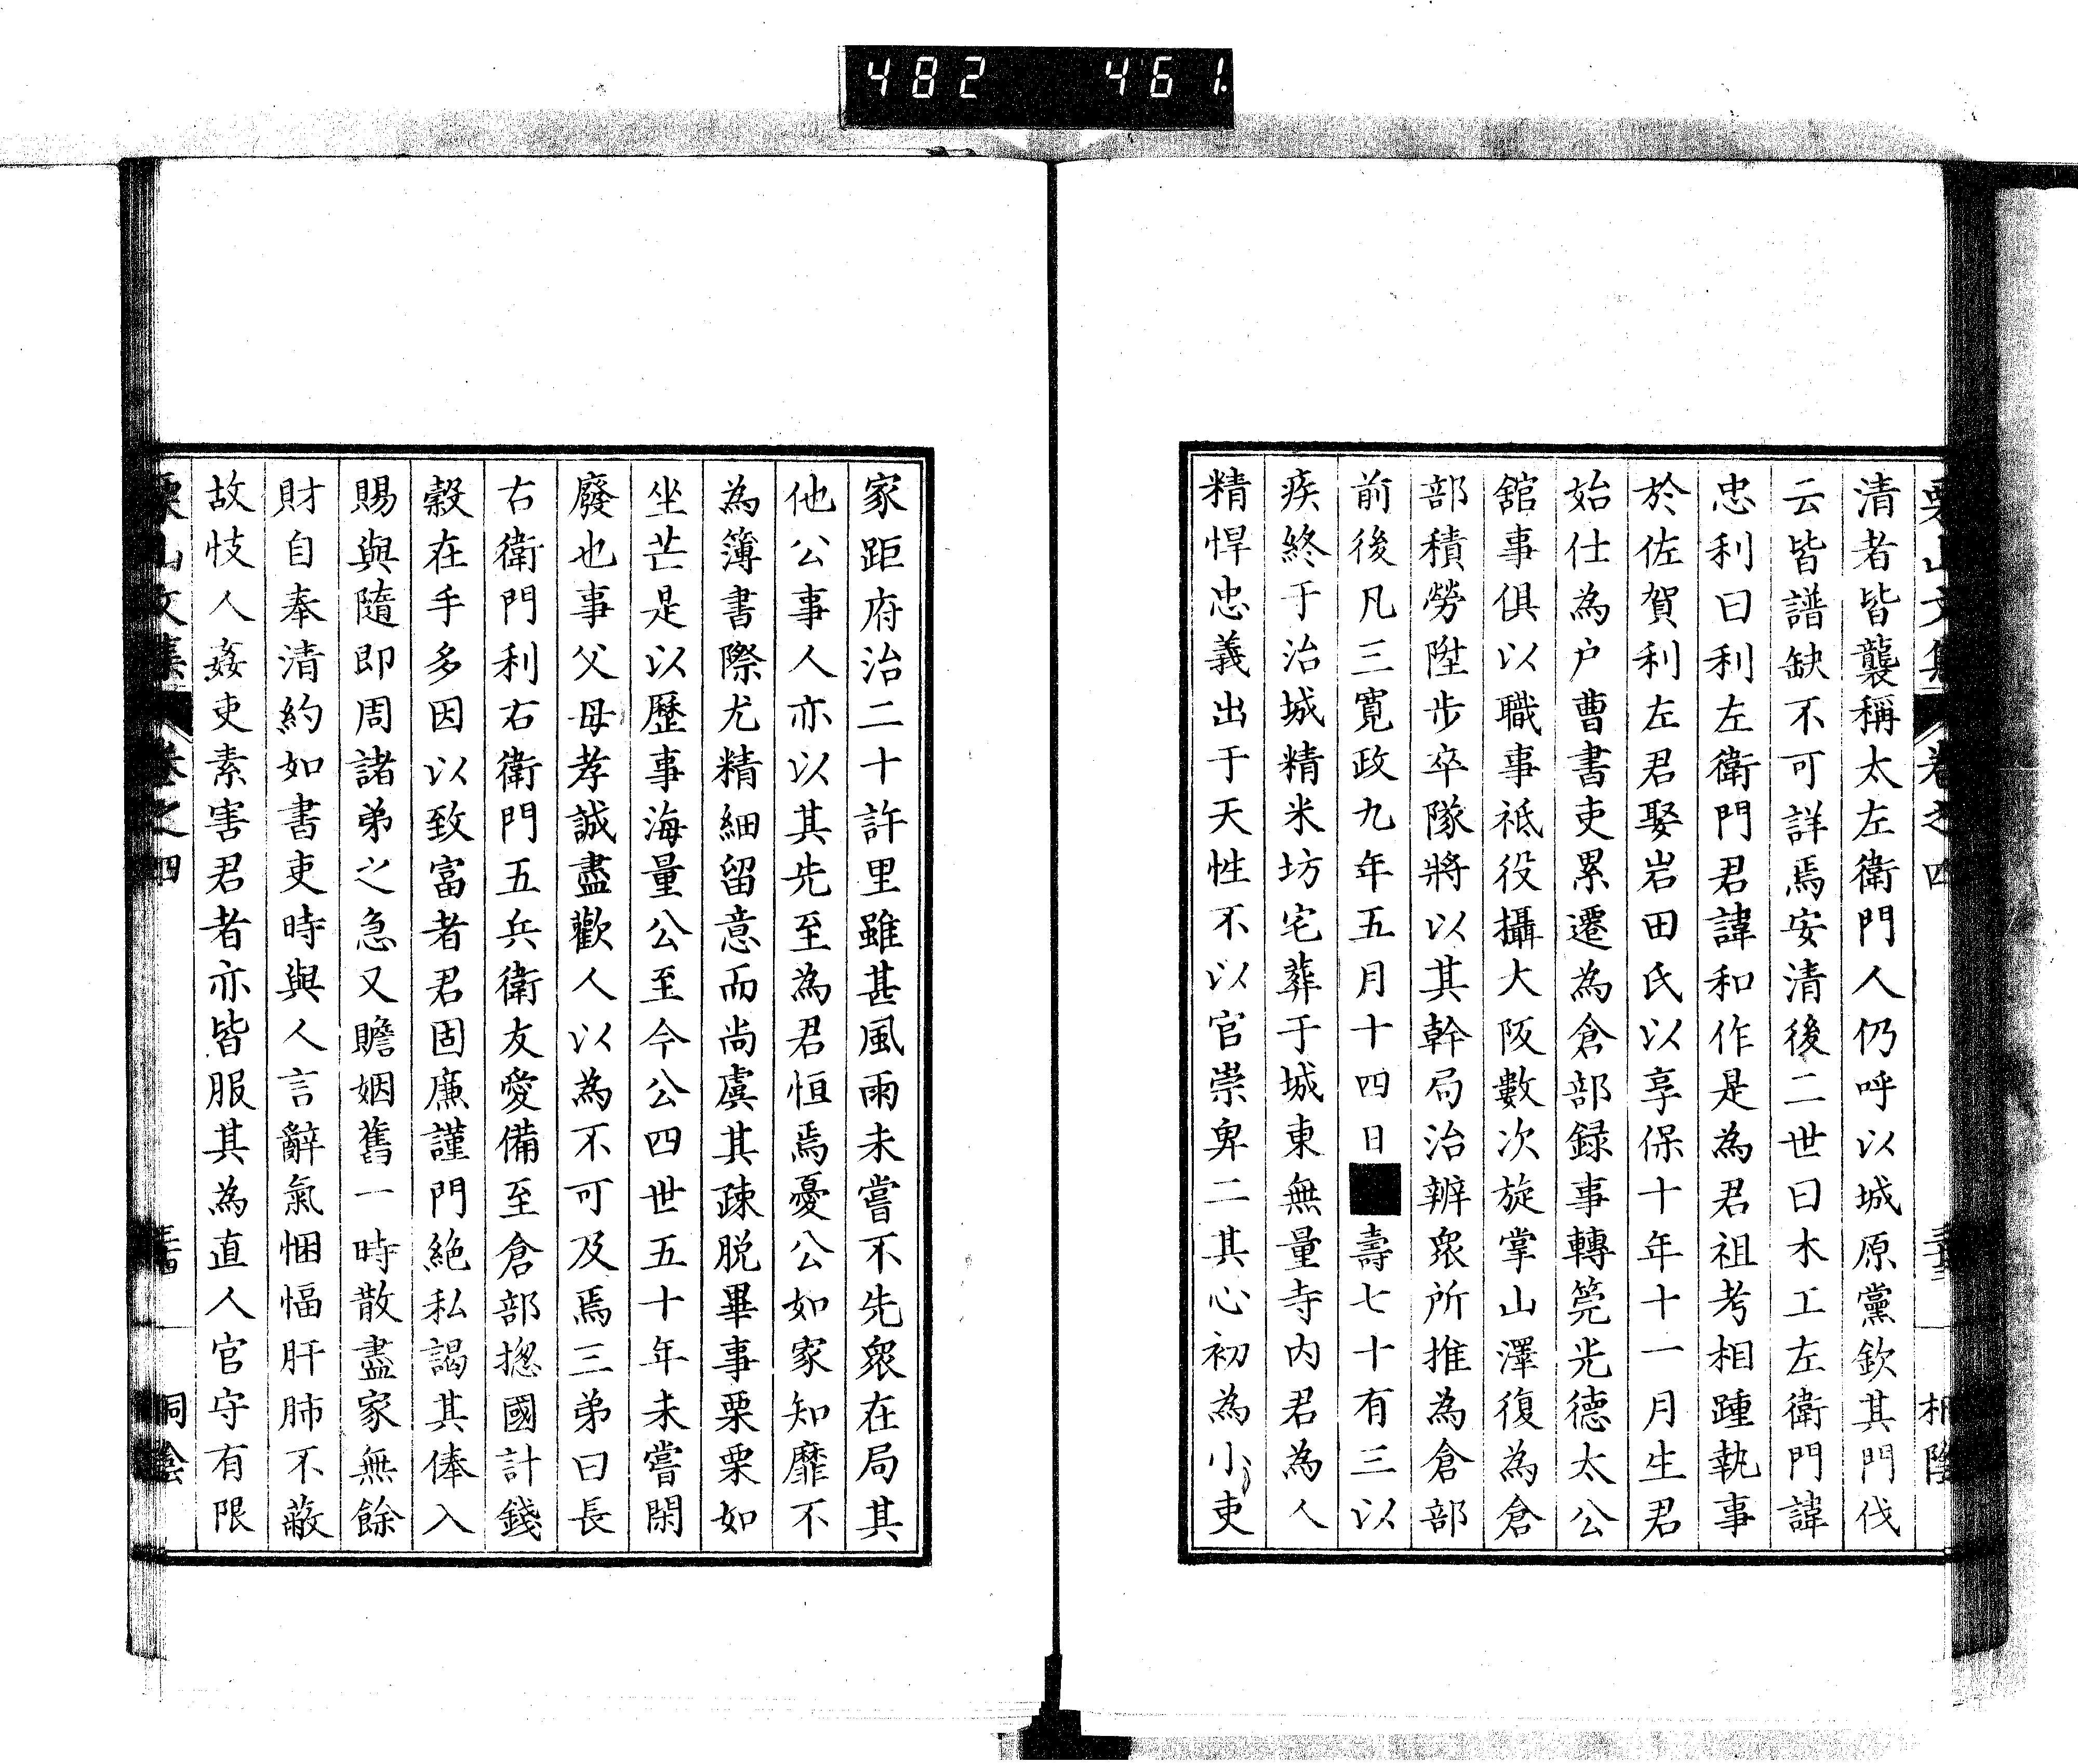 482 461.
栗山文集 卷之四 桐陰
清者皆襲稱太左衛門人仍呼以城原黨欽其門伐
云皆譜缺不可詳焉安清後二世曰木工左衛門諱
忠利曰利左衛門君諱和作是為君祖考相踵執事
於佐賀利左君娶岩田氏以享保十年十一月生君
始仕為户曹書吏累遷為倉部録事轉筦光德太公
舘事俱以職事祗役攝大阪數次旋掌山澤復為倉
部積勞陞步卒隊將以其幹局治辦衆所推為倉部
前後凡三寬政九年五月十四日■壽七十有三以
疾終于治城精米坊宅葬于城東無量寺内君為人
精悍忠義出于天性不以官崇卑二其心初為小吏
家距府治二十許里雖甚風雨未嘗不先衆在局其
他公事人亦以其先至為君恒焉憂公如家知靡不
為簿書際尤精細留意而尚虞其疎脱畢事栗栗如
坐芒是以歷事海量公至今公四世五十年未嘗閑
廢也事父母孝誠盡歡人以為不可及焉三弟曰長
右衛門利右衛門五兵衛友愛備至倉部揔國計錢
穀在手多因以致富者君固廉謹門絶私謁其俸入
賜與隨即周諸弟之急又贍姻舊一時散盡家無餘
財自奉清約如書吏時與人言辭氣悃愊肝肺不蔽
故忮人姦吏素害君者亦皆服其為直人官守有限
栗山文集 卷之四 桐陰